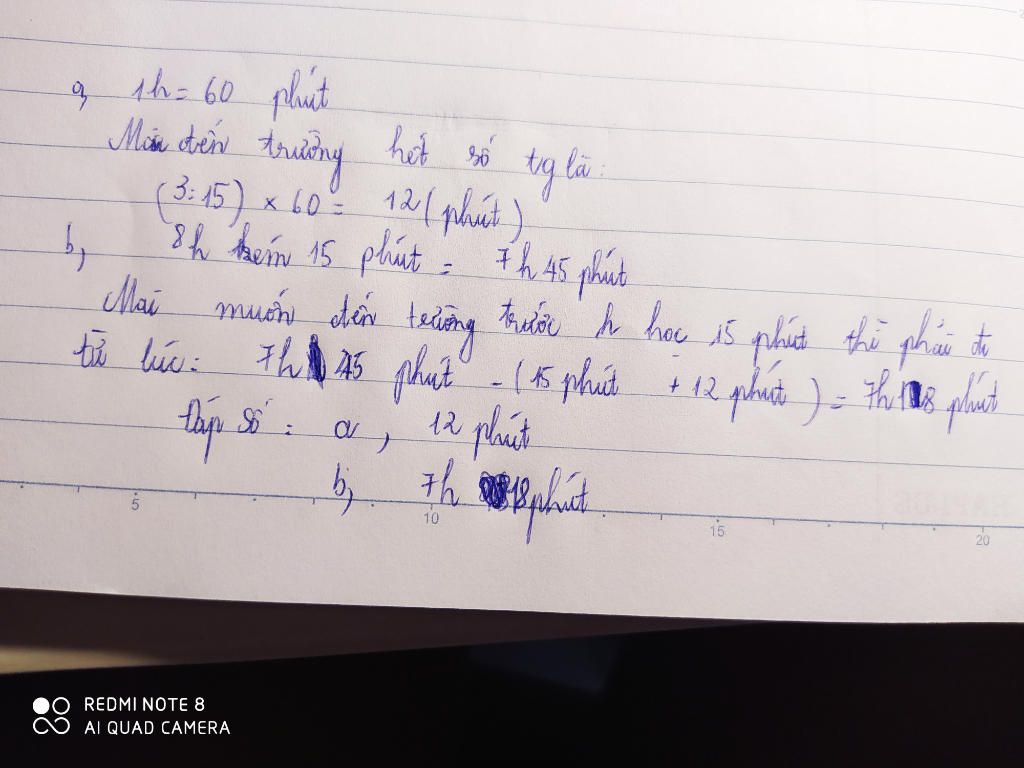 a, 1h = 60 phút
Mai đến trường hết số tg là:
(3:15) × 60 = 12 (phút)
b, 8h kém 15 phút = 7h 45 phút
Mai muốn đến trường trước h học 15 phút thì phải đi
từ lúc: 7h 45 phút - (15 phút + 12 phút) = 7h 18 phút
Đáp số: a, 12 phút
b, 7h 18 phút
5 10 15 20
REDMI NOTE 8
AI QUAD CAMERA